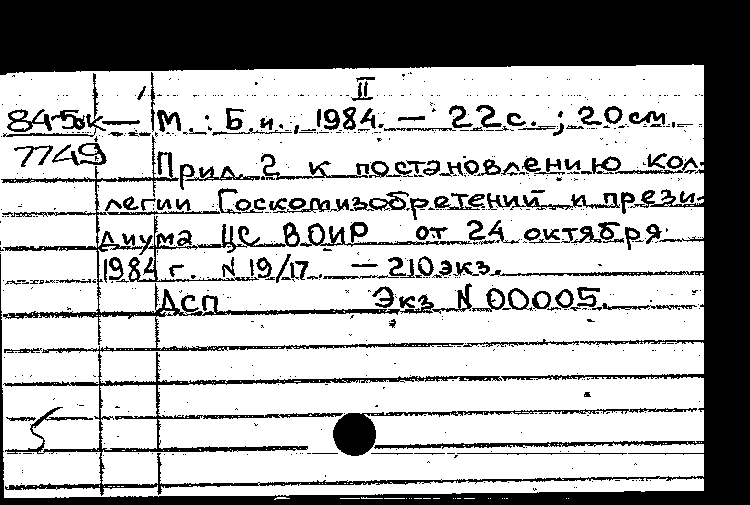 II
84-5дк — М. : Б.и., 1984. — 22 с. ; 20 см.
7749 Прил. 2 к постановлению кол-
легии Госкомизобретений и прези-
диума ЦС ВОИР от 24 октября
1984 г. N 19/17. — 210 экз.
ДСП Экз N 00005.
5